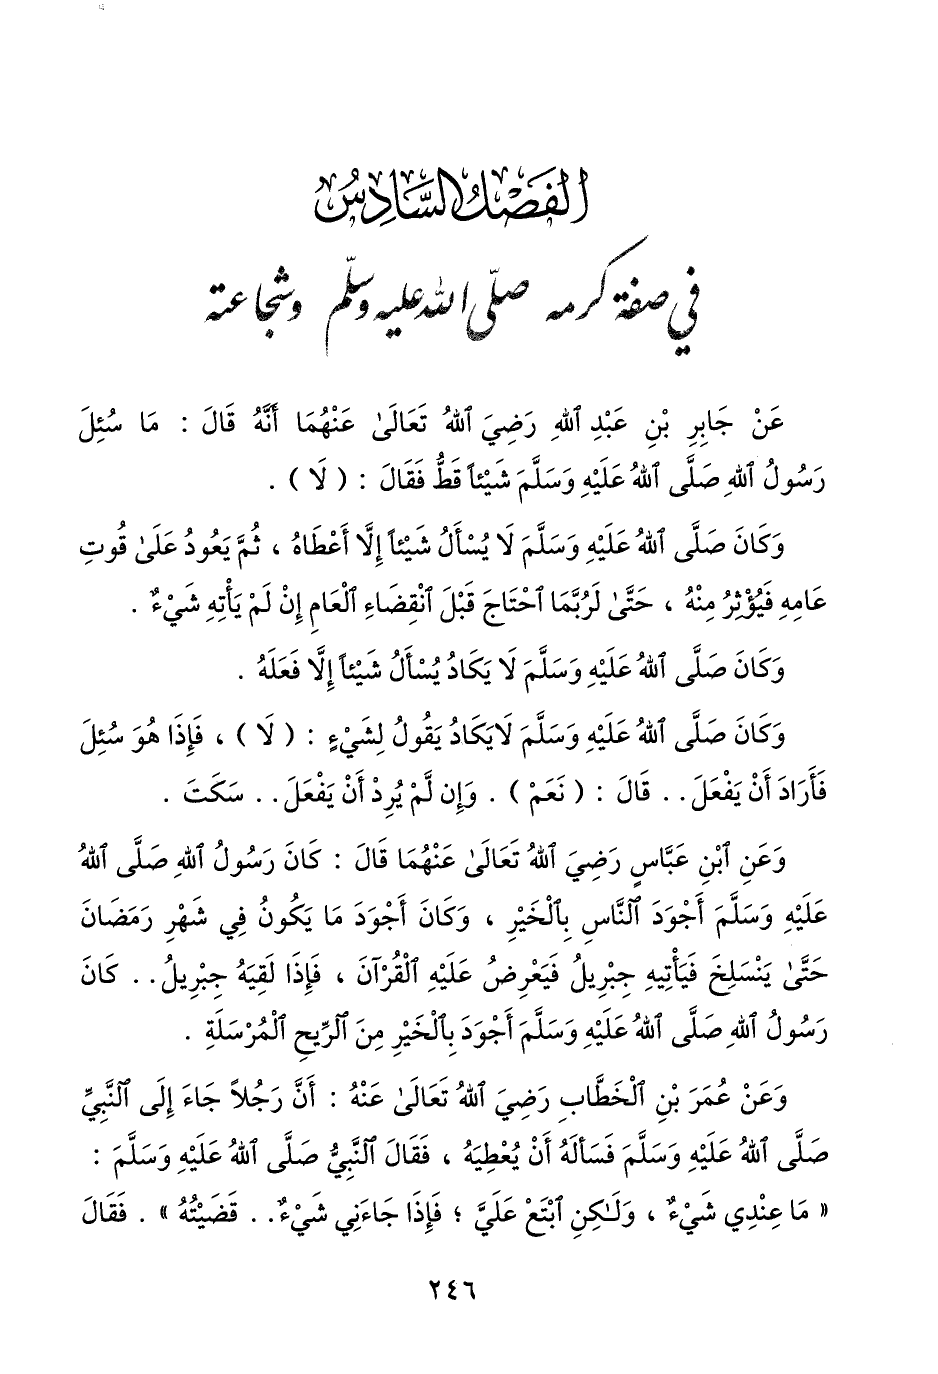 الفَصْلُ السَّادِسُ
في صفة كرمه صلّى الله عليه وسلّم وشجاعته
عَنْ جَابِرِ بْنِ عَبْدِ ٱللهِ رَضِيَ ٱللهُ تَعَالَىٰ عَنْهُمَا أَنَّهُ قَالَ : مَا سُئِلَ
رَسُولُ ٱللهِ صَلَّى ٱللهُ عَلَيْهِ وَسَلَّمَ شَيْئاً قَطُّ فَقَالَ : ( لَا ) .
وَكَانَ صَلَّى ٱللهُ عَلَيْهِ وَسَلَّمَ لَا يُسْأَلُ شَيْئاً إِلَّا أَعْطَاهُ ، ثُمَّ يَعُودُ عَلَىٰ قُوتِ
عَامِهِ فَيُؤْثِرُ مِنْهُ ، حَتَّىٰ لَرُبَّمَا ٱحْتَاجَ قَبْلَ ٱنْقِضَاءِ ٱلْعَامِ إِنْ لَمْ يَأْتِهِ شَيْءٌ .
وَكَانَ صَلَّى ٱللهُ عَلَيْهِ وَسَلَّمَ لَا يَكَادُ يُسْأَلُ شَيْئاً إِلَّا فَعَلَهُ .
وَكَانَ صَلَّى ٱللهُ عَلَيْهِ وَسَلَّمَ لَايَكَادُ يَقُولُ لِشَيْءٍ : ( لَا ) ، فَإِذَا هُوَ سُئِلَ
فَأَرَادَ أَنْ يَفْعَلَ.. قَالَ : ( نَعَمْ ) . وَإِن لَّمْ يُرِدْ أَنْ يَفْعَلَ.. سَكَتَ .
وَعَنِ ٱبْنِ عَبَّاسٍ رَضِيَ ٱللهُ تَعَالَىٰ عَنْهُمَا قَالَ : كَانَ رَسُولُ ٱللهِ صَلَّى ٱللهُ
عَلَيْهِ وَسَلَّمَ أَجْوَدَ ٱلنَّاسِ بِٱلْخَيْرِ ، وَكَانَ أَجْوَدَ مَا يَكُونُ فِي شَهْرِ رَمَضَانَ
حَتَّىٰ يَنْسَلِخَ فَيَأْتِيهِ جِبْرِيلُ فَيَعْرِضُ عَلَيْهِ ٱلْقُرْآنَ ، فَإِذَا لَقِيَهُ جِبْرِيلُ.. كَانَ
رَسُولُ ٱللهِ صَلَّى ٱللهُ عَلَيْهِ وَسَلَّمَ أَجْوَدَ بِٱلْخَيْرِ مِنَ ٱلرِّيحِ ٱلْمُرْسَلَةِ .
وَعَنْ عُمَرَ بْنِ ٱلْخَطَّابِ رَضِيَ ٱللهُ تَعَالَىٰ عَنْهُ : أَنَّ رَجُلاً جَاءَ إِلَى ٱلنَّبِيِّ
صَلَّى ٱللهُ عَلَيْهِ وَسَلَّمَ فَسَأَلَهُ أَنْ يُعْطِيَهُ ، فَقَالَ ٱلنَّبِيُّ صَلَّى ٱللهُ عَلَيْهِ وَسَلَّمَ :
« مَا عِنْدِي شَيْءٌ ، وَلَـٰكِنِ ٱبْتَعْ عَلَيَّ ؛ فَإِذَا جَاءَنِي شَيْءٌ.. قَضَيْتُهُ » . فَقَالَ
٢٤٦